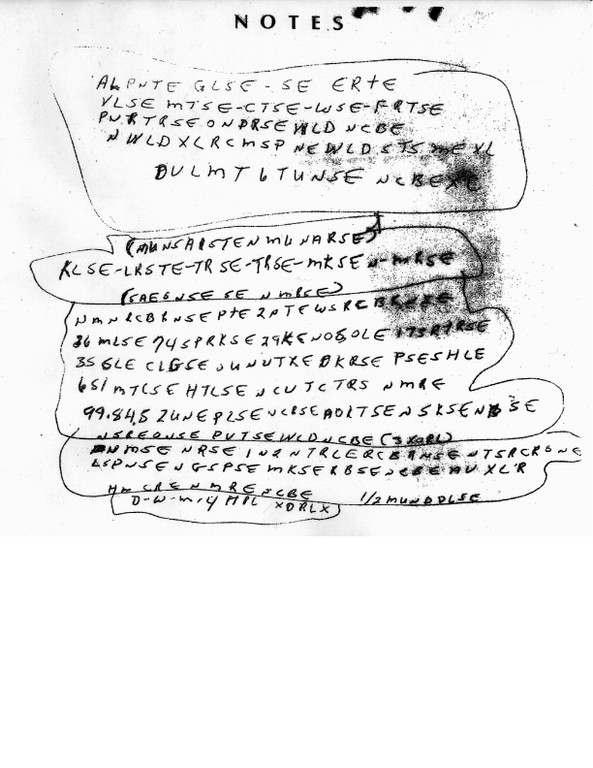 NOTES
ALPNTE GLSE-SE ERTE
VLSE MTSE-CTSE-WSE-FRTSE
PNRTRSEONDRSEWLD NCBE
NWLDXLRCMSP NEWLDSTSMEXL
DULMT6TUNSE NCBEXL
(MUNSAISTENMUNARSE)
KLSE-LRSTE-TRSE-TRSE-MKSEN-MRSE
(SAEGNSESE N MRSE)
NMNRCBRNSEPTE2PTEWSRCBRNSE
36MLSE74SPRKSE29KENOSOLE173RTRSE
35 GLE CLGSE UNUTXE DKRSE PSESHLE
651MTCSE HTLSE NCUTCTRS NMRE
99.84.5 2UNEPLSE NCRSEAOLTSENSKSEN SE
NSREONSE PUTSEWLDNCBE(3XORL)
NMSE NRSE IN2NTRLERCBRNSE NTSRCRONE
LSPNSENGSPSE MKSERBSENCBE AU XL'R
HM CRENMRENCBE 1/2MUNDDLSE
D-W-M-4 MPL XDRLX